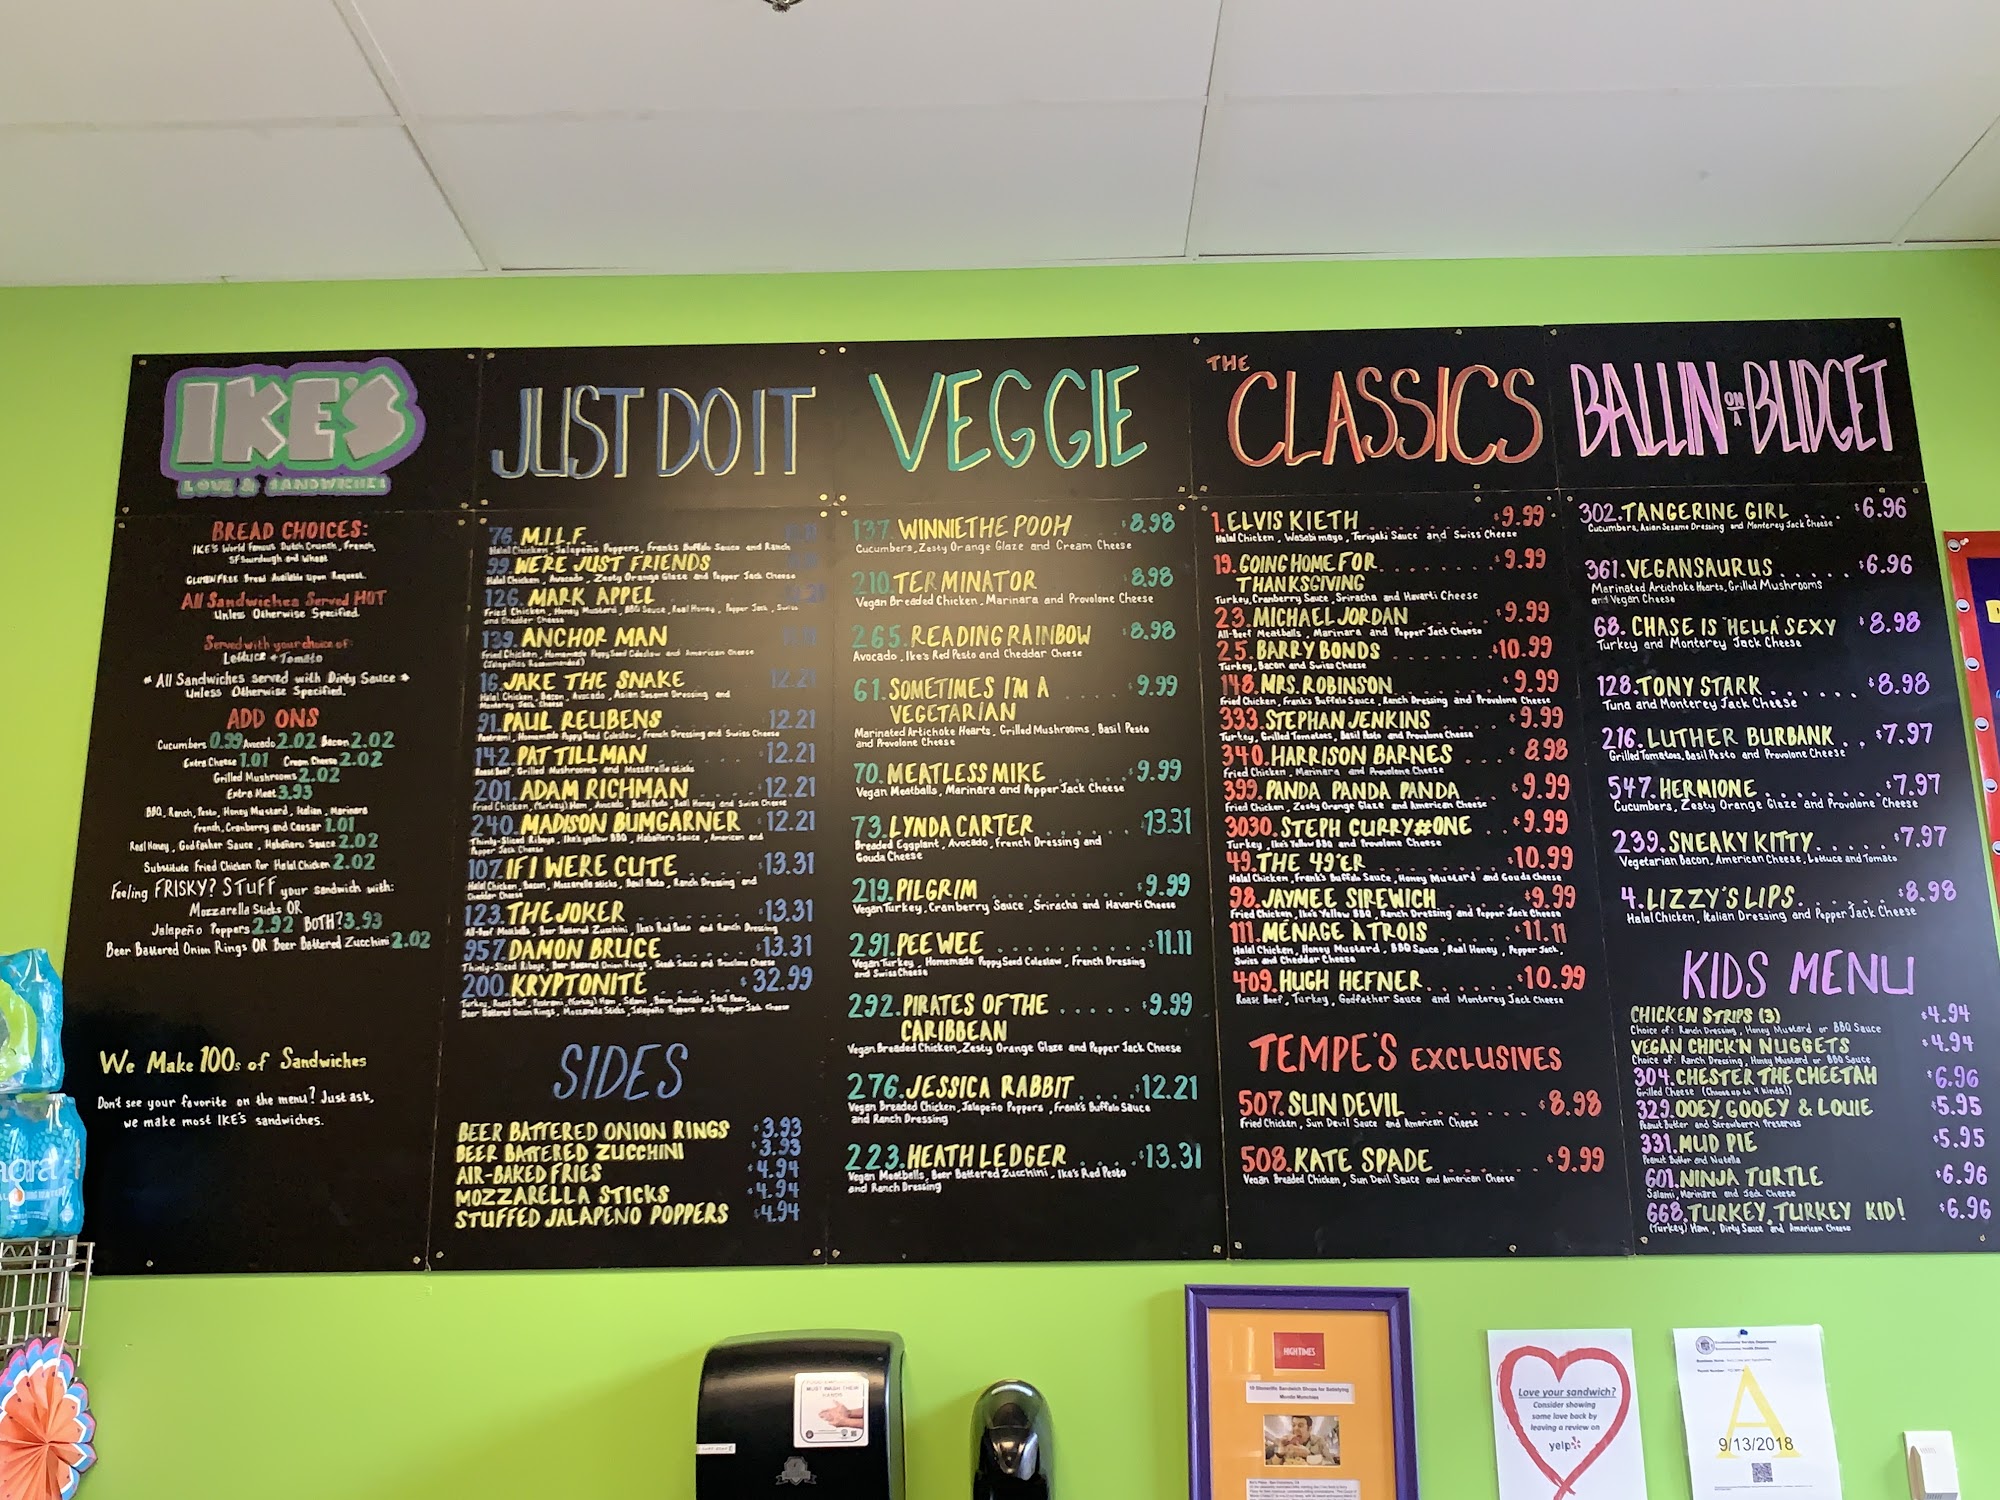 IKE'S
LOVE & SANDWICHES
BREAD CHOICES:
IKE'S World Famous Dutch Crunch, French,
SF Sourdough and Wheat
GLUTEN FREE Bread Available Upon Request.
All Sandwiches Served HOT
Unless Otherwise Specified.
Served with your choice of:
Lettuce + Tomato
* All Sandwiches served with Dirty Sauce *
Unless Otherwise Specified.
ADD ONS
Cucumbers 0.99 Avocado 2.02 Bacon 2.02
Extra Cheese 1.01 Cream Cheese 2.02
Grilled Mushrooms 2.02
Extra Meat 3.93
BBQ, Ranch, Pesto, Honey Mustard, Italian, Marinara
French, Cranberry and Caesar 1.01
Real Honey, Godfather Sauce, Habañero Sauce 2.02
Substitute Fried Chicken for Halal Chicken 2.02
Feeling FRISKY? STUFF your sandwich with:
Mozzarella Sticks OR
Jalapeño Poppers 2.92 BOTH? 3.93
Beer Battered Onion Rings OR Beer Battered Zucchini 2.02
We Make 100s of Sandwiches
Don't see your favorite on the menu? Just ask,
we make most IKE'S sandwiches.
JUST DO IT
76. M.I.L.F.
Halal Chicken, Jalapeño Poppers, Franks Buffalo Sauce and Ranch
99. WERE JUST FRIENDS
Halal Chicken, Avocado, Zesty Orange Glaze and Pepper Jack Cheese
126. MARK APPEL
Fried Chicken, Honey Mustard, BBQ Sauce, Real Honey, Pepper Jack, Swiss
and Cheddar Cheese
139. ANCHOR MAN
Fried Chicken, Homemade Poppy Seed Coleslaw and American Cheese
(Jalapeños Recommended)
16. JAKE THE SNAKE 12.21
Halal Chicken, Bacon, Avocado, Asian Sesame Dressing and
Monterey Jack Cheese
91. PAUL REUBENS . . . . . . 12.21
Pastrami, Homemade Poppy Seed Coleslaw, French Dressing and Swiss Cheese
142. PAT TILLMAN . . . . . . . 12.21
Roast Beef, Grilled Mushrooms and Mozzarella sticks
201. ADAM RICHMAN . . . . . 12.21
Fried Chicken, (Turkey) Ham, Avocado, Basil Pesto, Real Honey and Swiss Cheese
240. MADISON BUMGARNER . . 12.21
Thinly-Sliced Ribeye, Ike's yellow BBQ, Habañero Sauce, American and
Pepper Jack Cheese
107. IF I WERE CUTE . . . . . 13.31
Halal Chicken, Bacon, Mozzarella sticks, Basil Pesto, Ranch Dressing and
Cheddar Cheese
123. THE JOKER . . . . . . . . 13.31
All-Beef Meatballs, Beer Battered Zucchini, Ike's Red Pesto and Ranch Dressing
957. DAMON BRUCE . . . . . . 13.31
Thinly-Sliced Ribeye, Beer Battered Onion Rings, Steak Sauce and Provolone Cheese
200. KRYPTONITE . . . . . . $32.99
Turkey, Roast Beef, Pastrami, (Turkey) Ham, Salami, Bacon, Avocado, Basil Pesto,
Beer Battered Onion Rings, Mozzarella Sticks, Jalapeño Poppers and Pepper Jack Cheese
SIDES
BEER BATTERED ONION RINGS $3.93
BEER BATTERED ZUCCHINI $3.93
AIR-BAKED FRIES $4.94
MOZZARELLA STICKS $4.94
STUFFED JALAPENO POPPERS $4.94
VEGGIE
137. WINNIE THE POOH . . . $8.98
Cucumbers, Zesty Orange Glaze and Cream Cheese
210. TERMINATOR $8.98
Vegan Breaded Chicken, Marinara and Provolone Cheese
265. READING RAINBOW $8.98
Avocado, Ike's Red Pesto and Cheddar Cheese
61. SOMETIMES I'M A . . . . . $9.99
VEGETARIAN
Marinated Artichoke Hearts, Grilled Mushrooms, Basil Pesto
and Provolone Cheese
70. MEATLESS MIKE . . . . . $9.99
Vegan Meatballs, Marinara and Pepper Jack Cheese
73. LYNDA CARTER . . . . . . $13.31
Breaded Eggplant, Avocado, French Dressing and
Gouda Cheese
219. PILGRIM . . . . . . . . . $9.99
Vegan Turkey, Cranberry Sauce, Sriracha and Havarti Cheese
291. PEE WEE . . . . . . . . . . $11.11
Vegan Turkey, Homemade Poppy Seed Coleslaw, French Dressing
and Swiss Cheese
292. PIRATES OF THE . . . . . $9.99
CARIBBEAN
Vegan Breaded Chicken, Zesty Orange Glaze and Pepper Jack Cheese
276. JESSICA RABBIT . . . . $12.21
Vegan Breaded Chicken, Jalapeño Poppers, Frank's Buffalo Sauce
and Ranch Dressing
223. HEATH LEDGER . . . . . $13.31
Vegan Meatballs, Beer Battered Zucchini, Ike's Red Pesto
and Ranch Dressing
THE CLASSICS
1. ELVIS KIETH . . . . . . . $9.99
Halal Chicken, Wasabi mayo, Teriyaki Sauce and Swiss Cheese
19. GOING HOME FOR . . . . . $9.99
THANKSGIVING
Turkey, Cranberry Sauce, Sriracha and Havarti Cheese
23. MICHAEL JORDAN . . . . . $9.99
All-Beef Meatballs, Marinara and Pepper Jack Cheese
25. BARRY BONDS . . . . . . $10.99
Turkey, Bacon and Swiss Cheese
148. MRS. ROBINSON . . . . . $9.99
Fried Chicken, Frank's Buffalo Sauce, Ranch Dressing and Provolone Cheese
333. STEPHAN JENKINS . . . $9.99
Turkey, Grilled Tomatoes, Basil Pesto and Provolone Cheese
340. HARRISON BARNES . . . $8.98
Fried Chicken, Marinara and Provolone Cheese
399. PANDA PANDA PANDA $9.99
Fried Chicken, Zesty Orange Glaze and American Cheese
3030. STEPH CURRY#ONE . . $9.99
Turkey, Ike's Yellow BBQ and Provolone Cheese
49. THE 49'ER . . . . . . . . $10.99
Halal Chicken, Frank's Buffalo Sauce, Honey Mustard and Gouda Cheese
98. JAYMEE SIREWICH . . . . $9.99
Fried Chicken, Ike's Yellow BBQ, Ranch Dressing and Pepper Jack Cheese
111. MÉNAGE A TROIS . . . . $11.11
Halal Chicken, Honey Mustard, BBQ Sauce, Real Honey, Pepper Jack,
Swiss and Cheddar Cheese
409. HUGH HEFNER . . . . . $10.99
Roast Beef, Turkey, Godfather Sauce and Monterey Jack Cheese
TEMPE'S EXCLUSIVES
507. SUN DEVIL . . . . . . . $8.98
Fried Chicken, Sun Devil Sauce and American Cheese
508. KATE SPADE . . . . . . $9.99
Vegan Breaded Chicken, Sun Devil Sauce and American Cheese
BALLIN ON A BUDGET
302. TANGERINE GIRL . . . $6.96
Cucumbers, Asian Sesame Dressing and Monterey Jack Cheese
361. VEGANSAURUS . . . . . $6.96
Marinated Artichoke Hearts, Grilled Mushrooms
and Vegan Cheese
68. CHASE IS "HELLA" SEXY $8.98
Turkey and Monterey Jack Cheese
128. TONY STARK . . . . . . $8.98
Tuna and Monterey Jack Cheese
216. LUTHER BURBANK . . $7.97
Grilled Tomatoes, Basil Pesto and Provolone Cheese
547. HERMIONE . . . . . . . $7.97
Cucumbers, Zesty Orange Glaze and Provolone Cheese
239. SNEAKY KITTY . . . . . $7.97
Vegetarian Bacon, American Cheese, Lettuce and Tomato
4. LIZZY'S LIPS . . . . . . $8.98
Halal Chicken, Italian Dressing and Pepper Jack Cheese
KIDS MENU
CHICKEN STRIPS (3) $4.94
Choice of: Ranch Dressing, Honey Mustard or BBQ Sauce
VEGAN CHICK'N NUGGETS $4.94
Choice of: Ranch Dressing, Honey Mustard or BBQ Sauce
304. CHESTER THE CHEETAH $6.96
Grilled Cheese (Choose up to 4 Kinds!)
329. OOEY, GOOEY & LOUIE $5.95
Peanut Butter and Strawberry Preserves
331. MUD PIE $5.95
Peanut Butter and Nutella
601. NINJA TURTLE $6.96
Salami, Marinara and Jack Cheese
668. TURKEY, TURKEY KID! $6.96
(Turkey) Ham, Dirty Sauce and American Cheese
MUST WASH THEIR
HANDS
HIGH TIMES
Love your sandwich?
Consider showing
some love back by
leaving a review on
yelp
A
9/13/2018